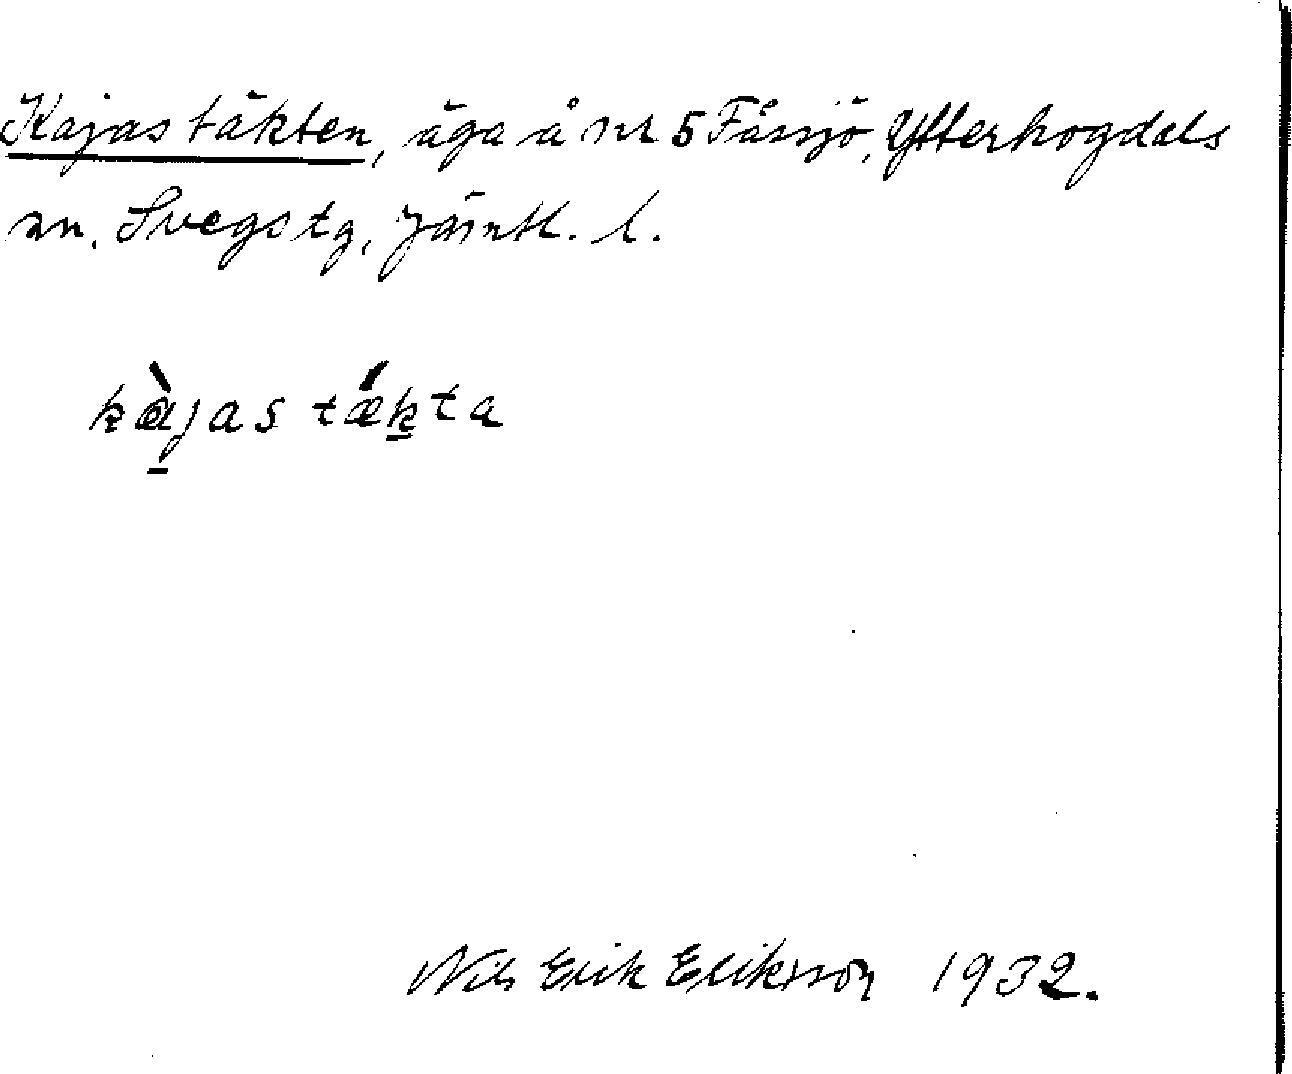 Kajas täkten, äga å nr 5 Fåssjö, Ytterhogdals
sn. Svegs tg, Jämtl. l.
kàjas tǽkta
Nils Erik Eriksson 1932.